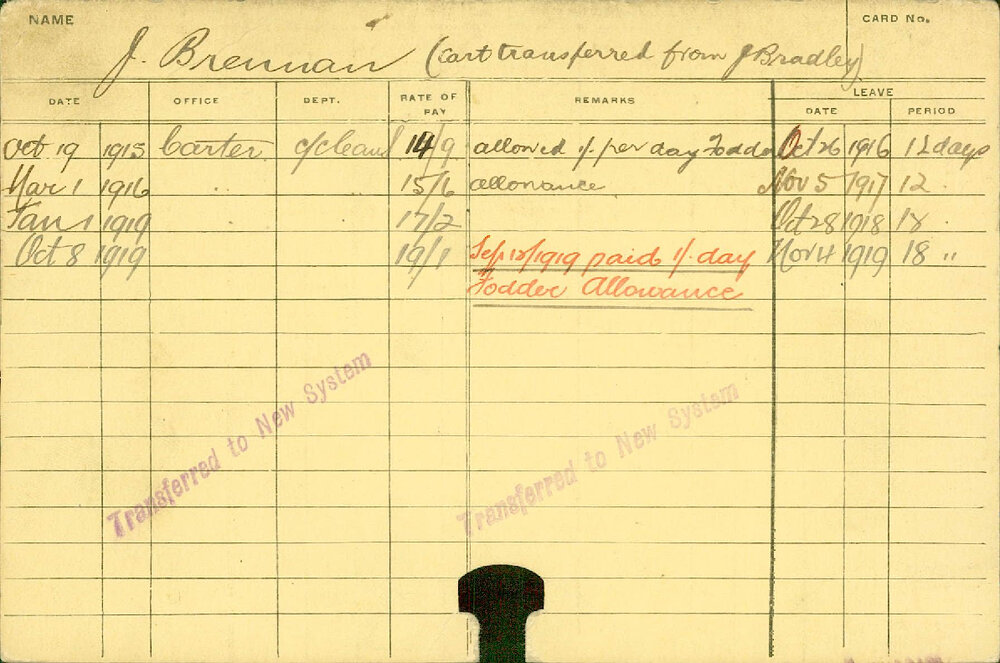 NAME
CARD No.
J. Brennan (Cart transferred from J Bradley)
DATE OFFICE DEPT. RATE OF PAY REMARKS LEAVE
DATE PERIOD
Oct 19 1915 Carter c/cleans 14/9 allowed 1/- per day Fodder Oct 26 1916 12 days
Mar 1 1916 " " 15/6 allowance Nov 5 1917 12 "
Jan 1 1919 17/2 Oct 28 1918 18
Oct 8 1919 19/1 Sep 12/1919 paid 1/- day Nov 4 1919 18 "
Fodder Allowance
Transferred to New System
Transferred to New System